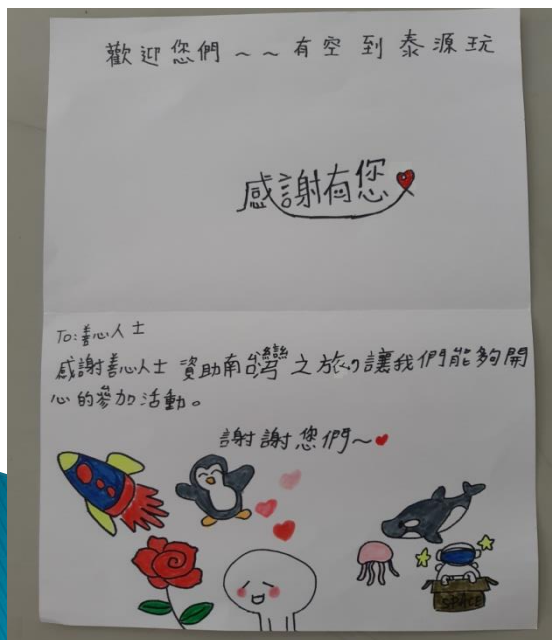 歡迎您們～～有空到泰源玩
感謝有您
To:善心人士
感謝善心人士資助南台灣之旅,讓我們能夠開
心的參加活動。
謝謝您們～
SPACE